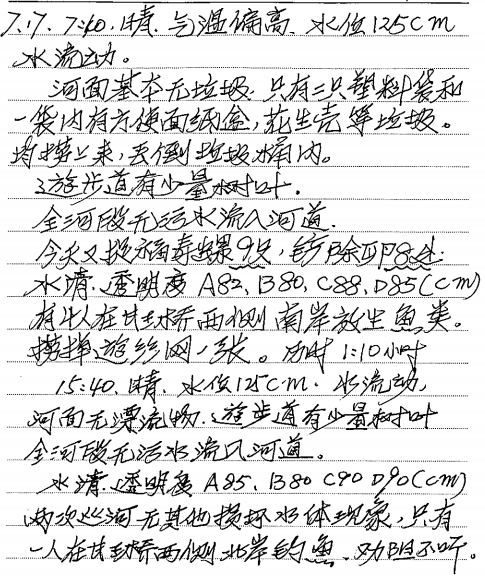 7.17. 7:40. 晴. 气温偏高. 水位125cm
水流动。
河面基本无垃圾. 只有三只塑料袋和
一袋内有方便面纸盒, 花生壳等垃圾。
均捞上来, 丢倒垃圾桶内。
2.游步道有少量树叶.
全河段无污水流入河道.
今天又捞福寿螺9只, 钓 除卵8处.
水清. 透明度 A82、B80、C88、D85(cm)
有4人在 桥西侧南岸放生鱼类。
捞掉 丝网1张。历时1:10小时
15:40. 晴. 水位125cm. 水流动.
河面无漂流物. 游步道有少量树叶
全河段无污水流入河道。
水清. 透明度 A85、B80 C90 D90(cm)
两次巡河无其他损坏水体现象, 只有
一人在 桥西侧北岸钓鱼. 劝阻不听。